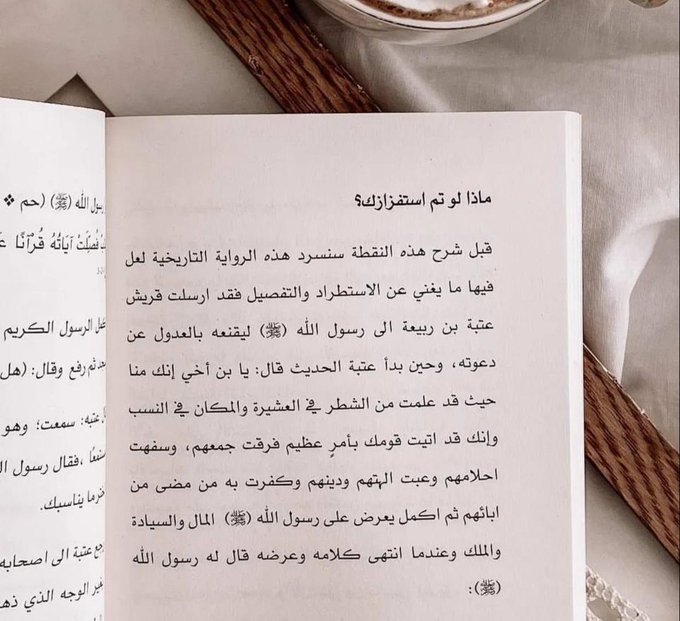 ماذا لو تم استفزازك؟
قبل شرح هذه النقطة سنسرد هذه الرواية التاريخية لعل
فيها ما يغني عن الاستطراد والتفصيل فقد ارسلت قريش
عتبة بن ربيعة الى رسول الله (ﷺ) ليقنعه بالعدول عن
دعوته، وحين بدأ عتبة الحديث قال: يا بن أخي إنك منا
حيث قد علمت من الشطر في العشيرة والمكان في النسب
وإنك قد اتيت قومك بأمرٍ عظيم فرقت جمعهم، وسفهت
احلامهم وعبت الهتهم ودينهم وكفرت به من مضى من
ابائهم ثم اكمل يعرض على رسول الله (ﷺ) المال والسيادة
والملك وعندما انتهى كلامه وعرضه قال له رسول الله
(ﷺ):
❖ (حم رسول الله (ﷺ)
فُصِّلَتْ آيَاتُهُ قُرْآنًا
الرسول الكريم
ثم رفع وقال: (هل
عتبه: سمعت؛ وهو
، فقال رسول
ما يناسبك.
عتبة الى اصحابه
الوجه الذي